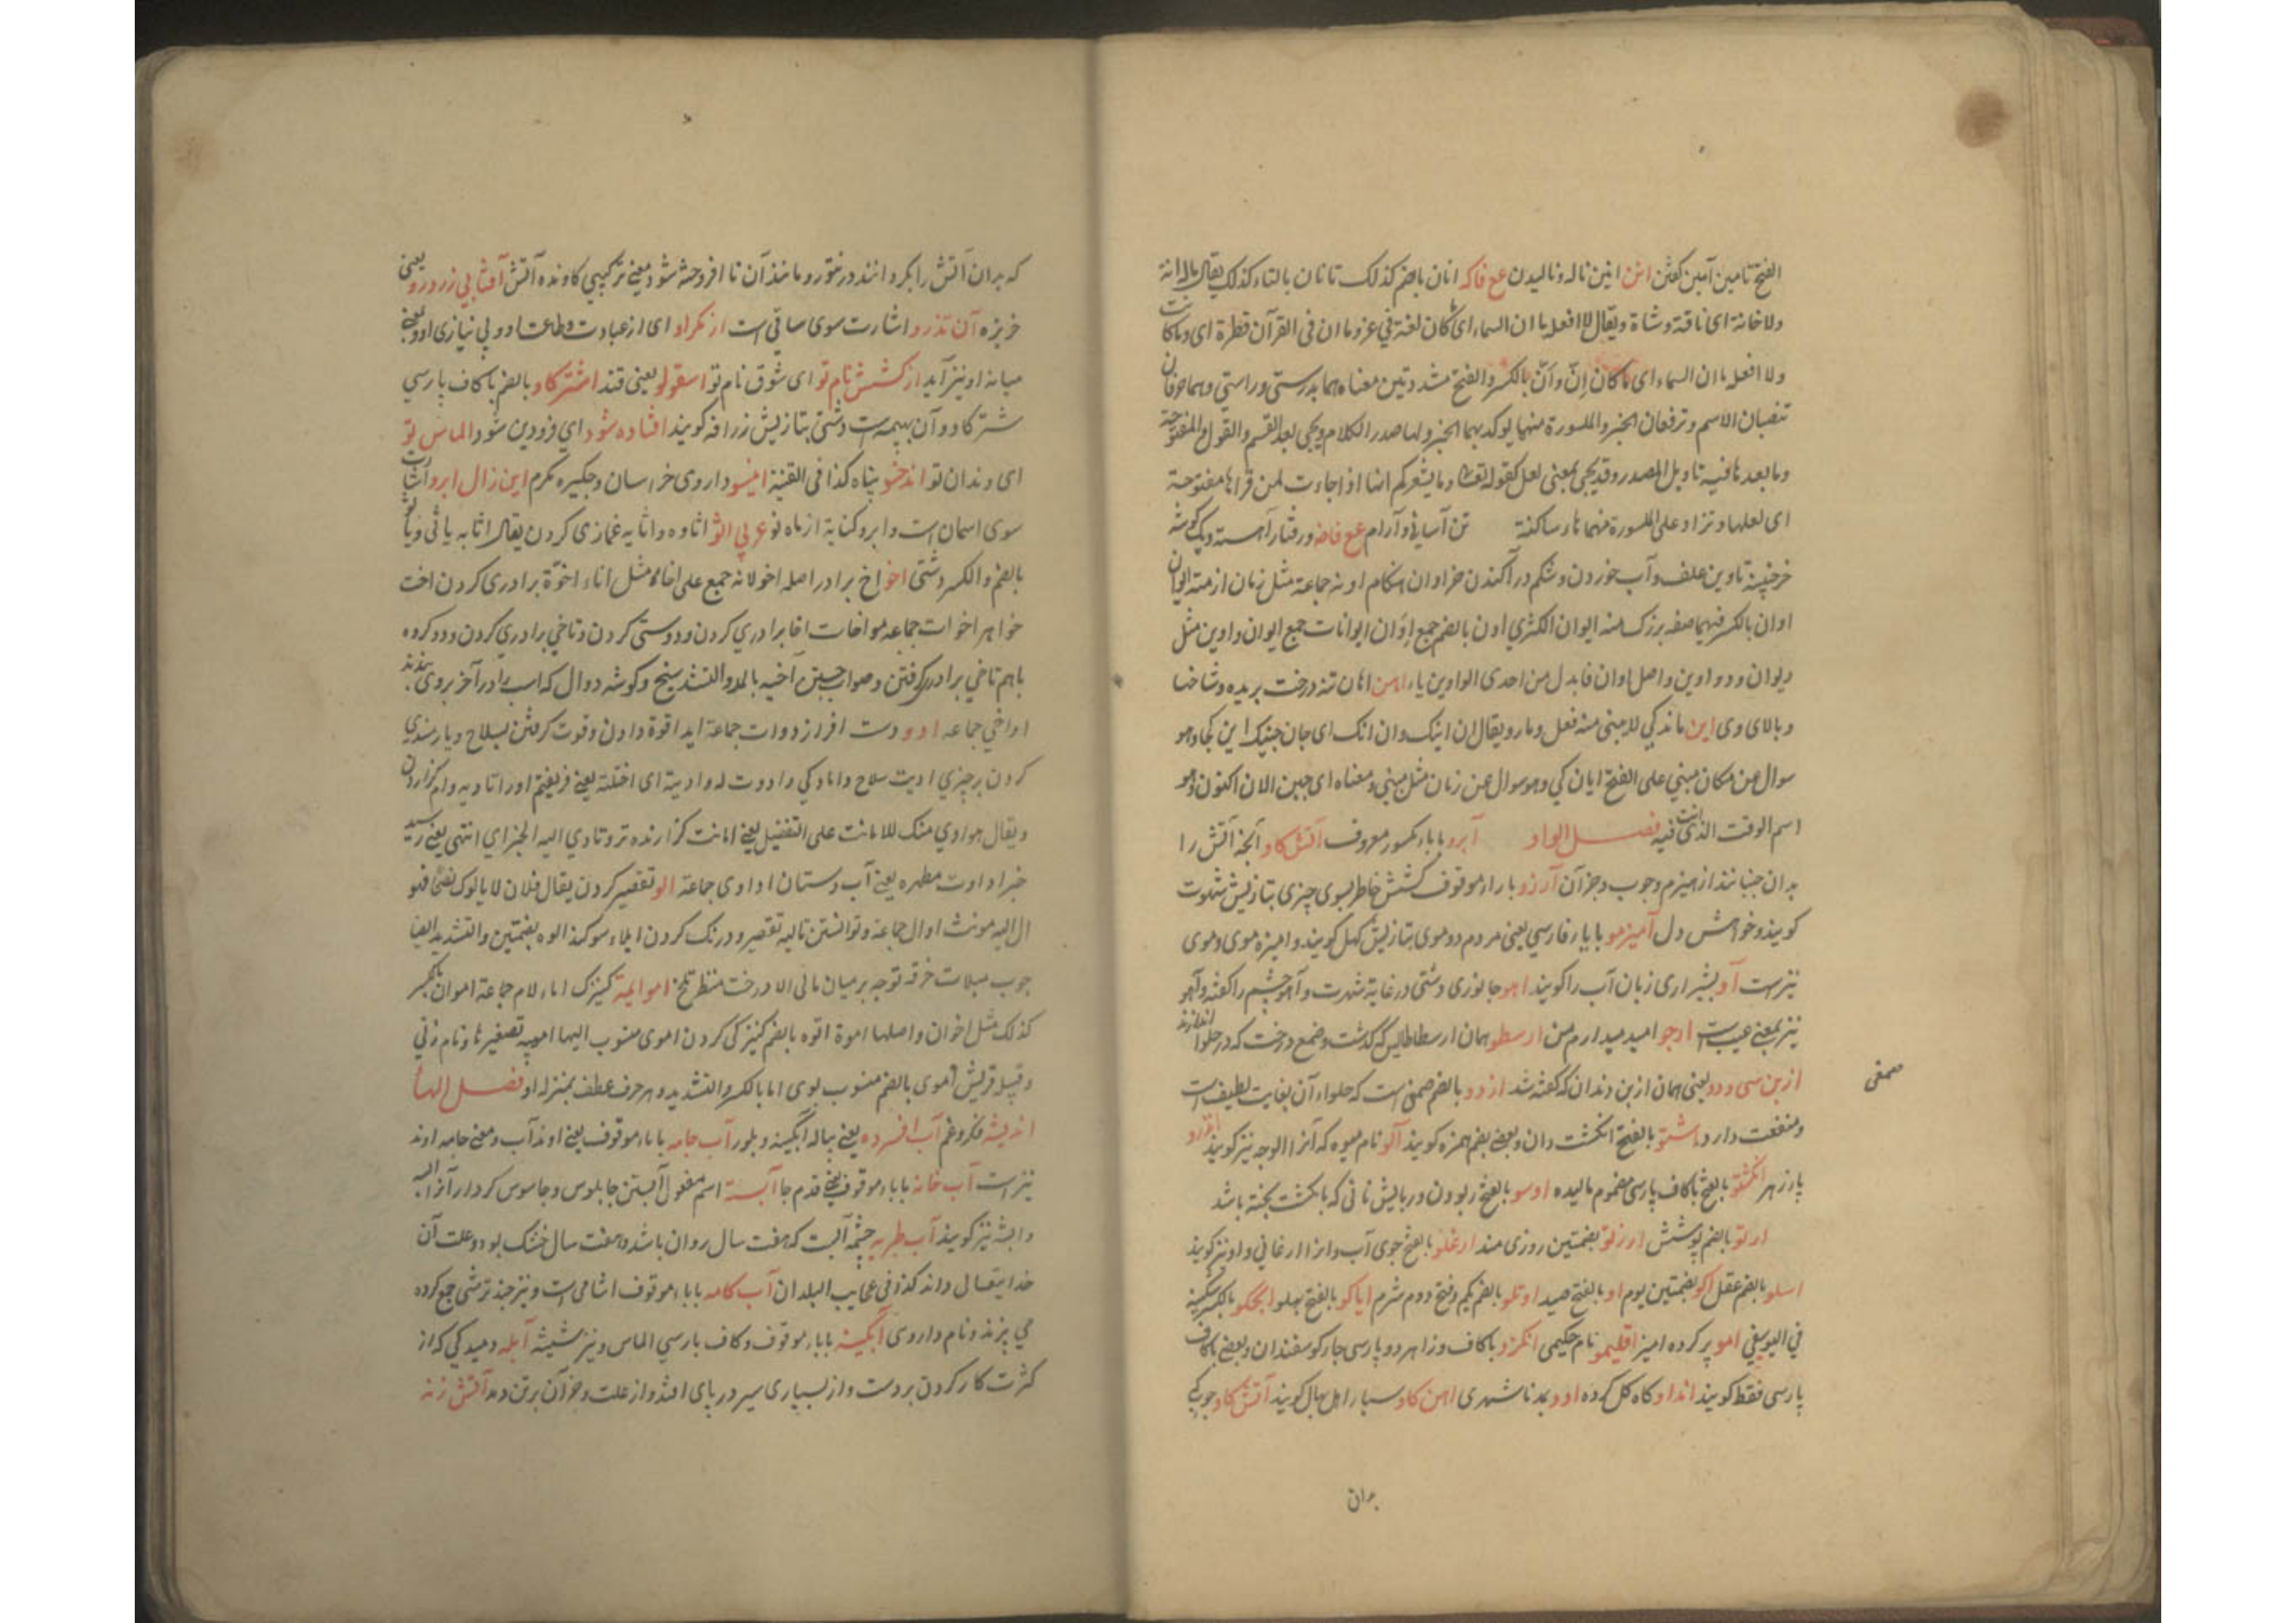 الفتح تامین آمین کفتن انن انین ناله و نالیدن عع فاکه انان بالضم کذلک تانان بالتاء کذلک یقال ماله انة
ولا حانة ای ناقة و شاة و یقال لا افعله ما ان السماء ای کان لغة فی عز و ما ان فی القرآن قطرة ای و ما کانت
ولا افعله ما ان السماء ای ما کان اِنّ و اَنّ بالکسر و الفتح مشددتین معناهما بدرستی و راستی و هما حرفان
تنصبان الاسم و ترفعان الخبر و المکسورة منهما یوکد بهما الخبر و لها صدر الکلام و یجی بعد القسم و القول و المفتوحة
و ما بعدها فیه تاویل المصدر و قد یجی بمعنی لعل کقوله تعالی و ما یشعرکم انها اذا جاءت لمن قراها مفتوحة
ای لعلها و تزاد علی المکسورة منهما هاء ساکنة تن آسانی و آرام عع فاضه و رفتار آهسته و یک گوشه
خرجینه تاوین علف و آب خوردن و شکم در آکندن خر اوان هنکام اونه جماعة مثل زمان ازمنة ایوان
اوان بالکسر فیهما صفه بزرک منه ایوان الکسری اون بالضم جمع اِوَان ایوانات جمع ایوان و اوین مثل
دیوان و دواوین و اصل اوان فابدل من احدی الواوین یاء اهن اهان تنه درخت بریده و شاخها
و بالای وی این ماندکی لا یبنی منه فعل و مار و یقال ان اینک و ان انک ای جان جنیک این کجا و هو
سوال عن مکان مبنی علی الفتح ایان کی و هو سوال عن زمان مثل مبنی و معناه ای حین الان اکنون و هو
اسم الوقت الذی انت فیه فصل الواو آبرو باباء مکسور معروف آتش کاو آنجه آتش را
بدان جنبانند از هیزم و جوب و جز آن آرزو با راء موقوف کشش خاطر بسوی چیزی بتازیش شهوت
کویند و خواهش دل آمیزمو با یاء فارسی یعنی مردم دوموی بتازیش کهل کویند و امیزه موی و موی
نیزست آو بشیرازی زبان آب را کویند اهو جانوری دشتی در غایة شهرت و آهو چشم را کفته و آهو
نیز بمعنی عیب است ارجو امید میدارم من ارسطو همان ارسطاطالیس که کذشت و صمغ درخت که در حلوا اندازند
ازبن سی و دو یعنی همان ازبن دندان که کفته شد ازدو بالضم صمغی است که حلواء آن بغایت لطیف است
صمغی
و منفعت دارد اشتو بالفتح انکشت دان و بعضی بضم همزه کویند آلو نام میوه که آنرا الوجه نیز کویند اندرو
پازهر انکشتو بالفتح با کاف پارسی مضموم مالیده اوسو بالفتح ربودن و ربایش نانی که بانکشت پخته باشد
ارتو بالضم پوشش ارزتو بضمتین روزی مند ارغلو بالفتح جوی آب و انرا ارغا نی و او نیز کویند
اسلو بالضم عقل اکو بضمتین بوم او بالفتح صید اوتلو بالضم یکم و فتح دوم شرم ایاکو بالفتح پهلو ایجکو بالکسر سکینه
فی الیوسفی امو پر کرده امیز اقلیمو نام حکیمی انکزو با کاف و زا هر دو پارسی جارکوسفندان و بعضی با کاف
پارسی فقط کویند انداو کاه کل کرده اوو بمد ناشهری اهن کاو سپار اهل بهال کویند آتش کاو جوبکی
بدان
که بدان آتش را بکردانند در تنور و مانند آن تا افروخته شود و معنی ترکیبی کاونده آتش آفتابی زردرو یعنی
خربزه آن تذرو اشارت سوی ساقی است از مکر او ای از عبادت و طاعت او و بی نیازی او و بمعنی
میانه او نیز آید از کشش نام تو ای شوق نام تو اسقولو یعنی قند اشتر کاو بالضم با کاف پارسی
شتر کاو و آن بهیمه است دشتی بتازیش زرافه کویند افتاده شو ای فرودین شو الماس تو
ای دندان تو اندخسو پناه کذا فی القنیة انیسو داروی خراسان و جکیره مکرم این زال ابرو اشارت
سوی اسمان است و ابرو کنایة از ماه نو عربی اثو اثاوه و اثایه غمازی کردن یقال اثا به یاثی و یاثو
بالضم و الکسر و شتی اخو اخ برادر اصله اخو لانه جمع علی اخاء مثل اناء اخوّة برادری کردن اخت
خواهر اخوات جماعه مواخات اخا برادری کردن و دوستی کردن و تاخی برادری کردن و دو کرده
باهم تاخی برادر کرفتن و صواب جستن آخیه بالمد و التشدید میخ و کوشه دوال که اسب را در آخر بروی بندند
اواخی جماعه ادو دست افراز دوات جماعة اید اقوة دادن و قوت کرفتن بسلاح و یارمندی
کردن بر چیزی ادیت سلاح و امادکی و ادوت له و ادیته ای اختلته یعنی فریفتم او را تادیه وام کزاردن
و یقال هو اودی منک للامانت علی التفضیل یعنی امانت کزارنده تر و تادی الیه الخبر ای انتهی یعنی رسید
خبر اداوت مطهره یعنی آب دستان اداوی جماعة الو تقصیر کردن یقال فلان لا یالوک نصحا فهو
ال الیه مونث اوال جماعة و توانستن تالیه تقصیر و درنک کردن ایلاء سوکند الوه بضمتین و التشدید ایضا
جوب میلات خرقه نوحه بر میان مالی الا درخت منظر تلخ امو ایمة کنیزک اماء لام جماعة اموان بالکسر
کذلک مثل اخوان و اصلها اموة اتوه بالضم کنیزکی کردن اموی منسوب الیها امیه تصغیرها و نام زنی
و قبیله قریش اموی بالضم منسوب بوی اما بالکسر و التشدید و هر حرف عطف بمنزله او فصل الهاء
اندیشه فکر و غم آب افسرده یعنی پیاله ابکینه و بلور آب جامه باباء موقوف یعنی اوند آب و معنی جامه اوند
نیز است آب خانه باباء موقوف یعنی قدم جا آبسته اسم مفعول آبستن جابلوس و جاسوس کردار آنرا الیسه
و ابشه نیز کویند آب طبریه چشمه آبست که هفت سال روان باشد و هفت سال خشک بود و علت آن
خدایتعالی داند کذا فی عجایب البلدان آب کامه باباء موقوف اشامی است و نیز جند ترشی جمع کرده
می پزند و نام داروی آبکینه باباء موقوف و کاف پارسی الماس و نیز شیشه آبله دمیدکی که از
کثرت کار کردن بردست و از بسیاری سیر در پای افتد و از علت و جز آن بر تن دمد آتش زنه